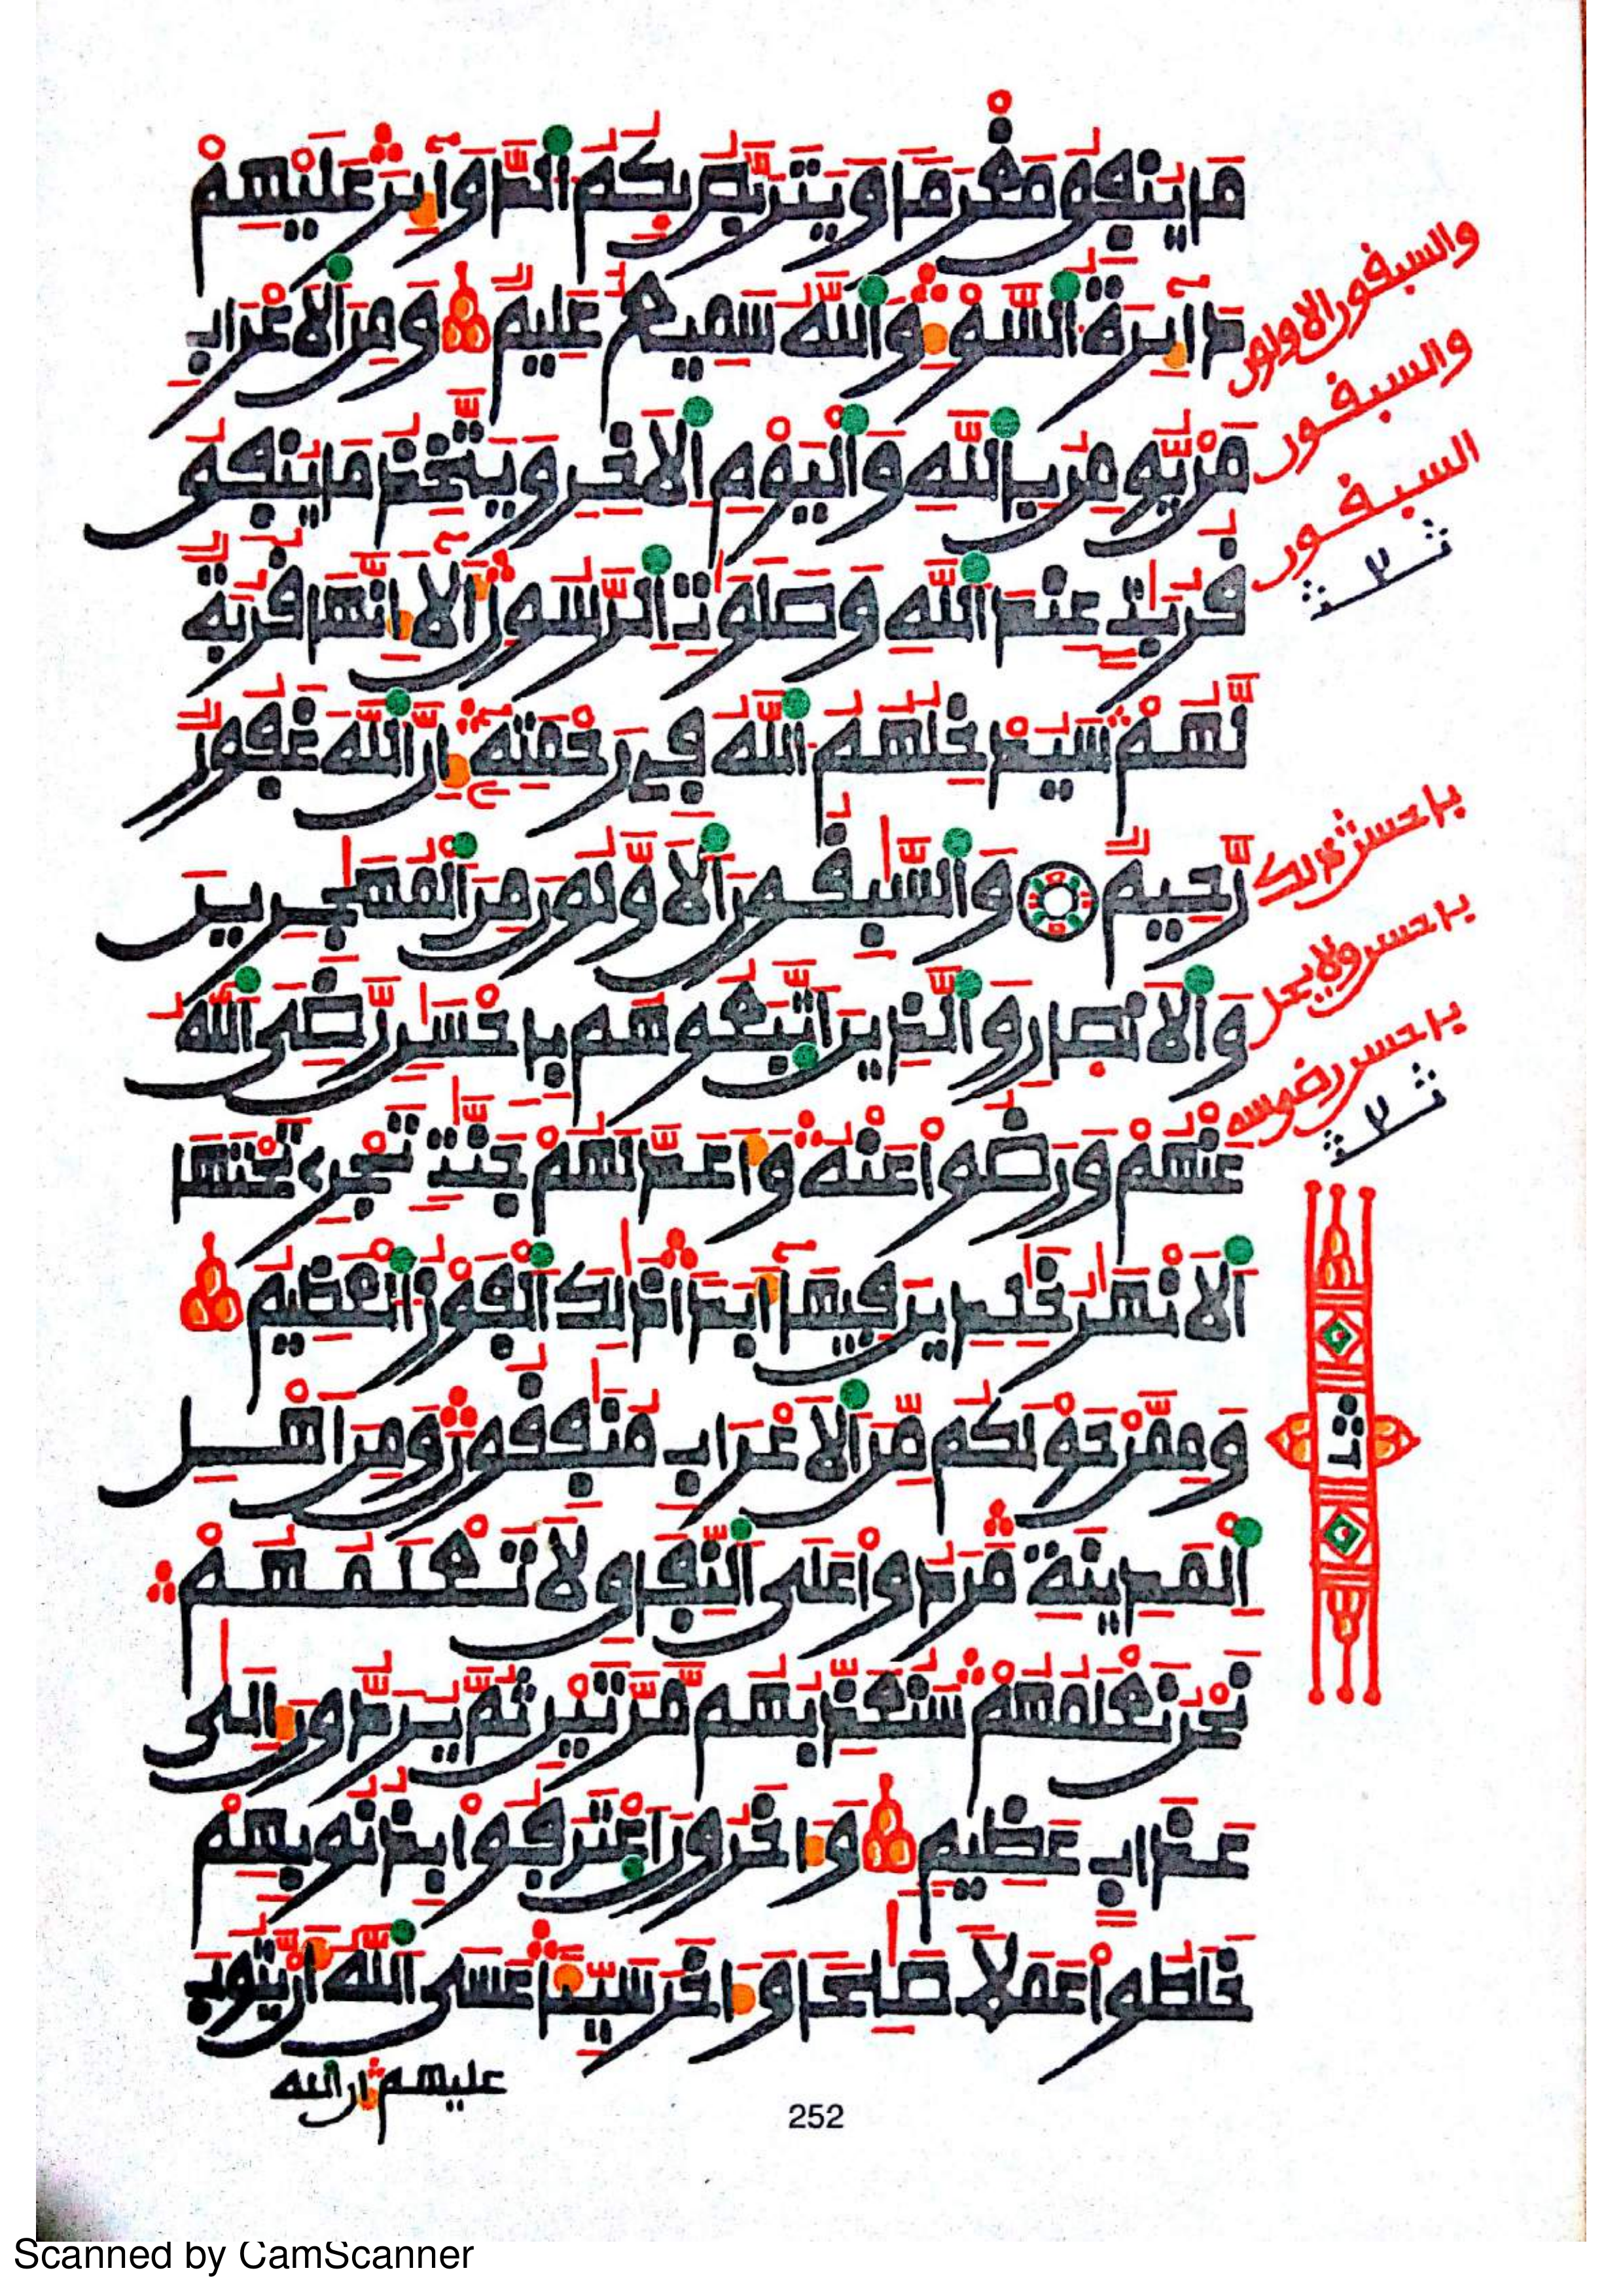 ما ينفق مغرما ويتربص بكم الدوائر عليهم
دائرة السوء والله سميع عليم ومن الاعراب
من يومن بالله واليوم الاخر ويتخذ ما ينفق
قربت عند الله وصلوت الرسول الا انها قربة
لهم سيدخلهم الله في رحمته ان الله غفور
رحيم والسبقون الاولون من المهجرين
والانصار والذين اتبعوهم باحسن رضي الله
عنهم ورضوا عنه واعد لهم جنت تجري تحتها
الانهر خلدين فيها ابدا ذلك الفوز العظيم
وممن حولكم من الاعراب منفقون ومن اهل
المدينة مردوا على النفاق لا تعلمهم
نحن نعلمهم سنعذبهم مرتين ثم يردون الى
عذاب عظيم واخرون اعترفوا بذنوبهم
خلطوا عملا صلحا واخر سيئا عسى الله ان يتوب
عليهم ان الله
والسبقون الاولون
والسبقون
السبقون
باحسن
باحسن
باحسن
252
Scanned by CamScanner